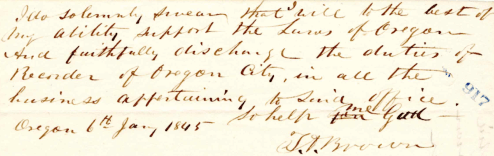 I do solemnly swear that I will to the best of
my ability, support the Laws of Oregon
And faithfully discharge the duties of
Recorder of Oregon City, in all the
business appertaining to said office.
So help me God —
Oregon 6th Jany 1845
Brown
917